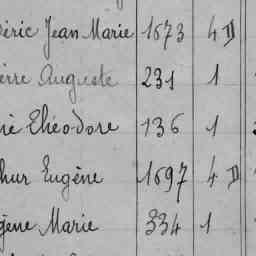 déric Jean Marie 1673 4 D
erre Auguste 231 1
ré Théodore 136 1
thur Eugène 1697 4 D
gène Marie 334 1